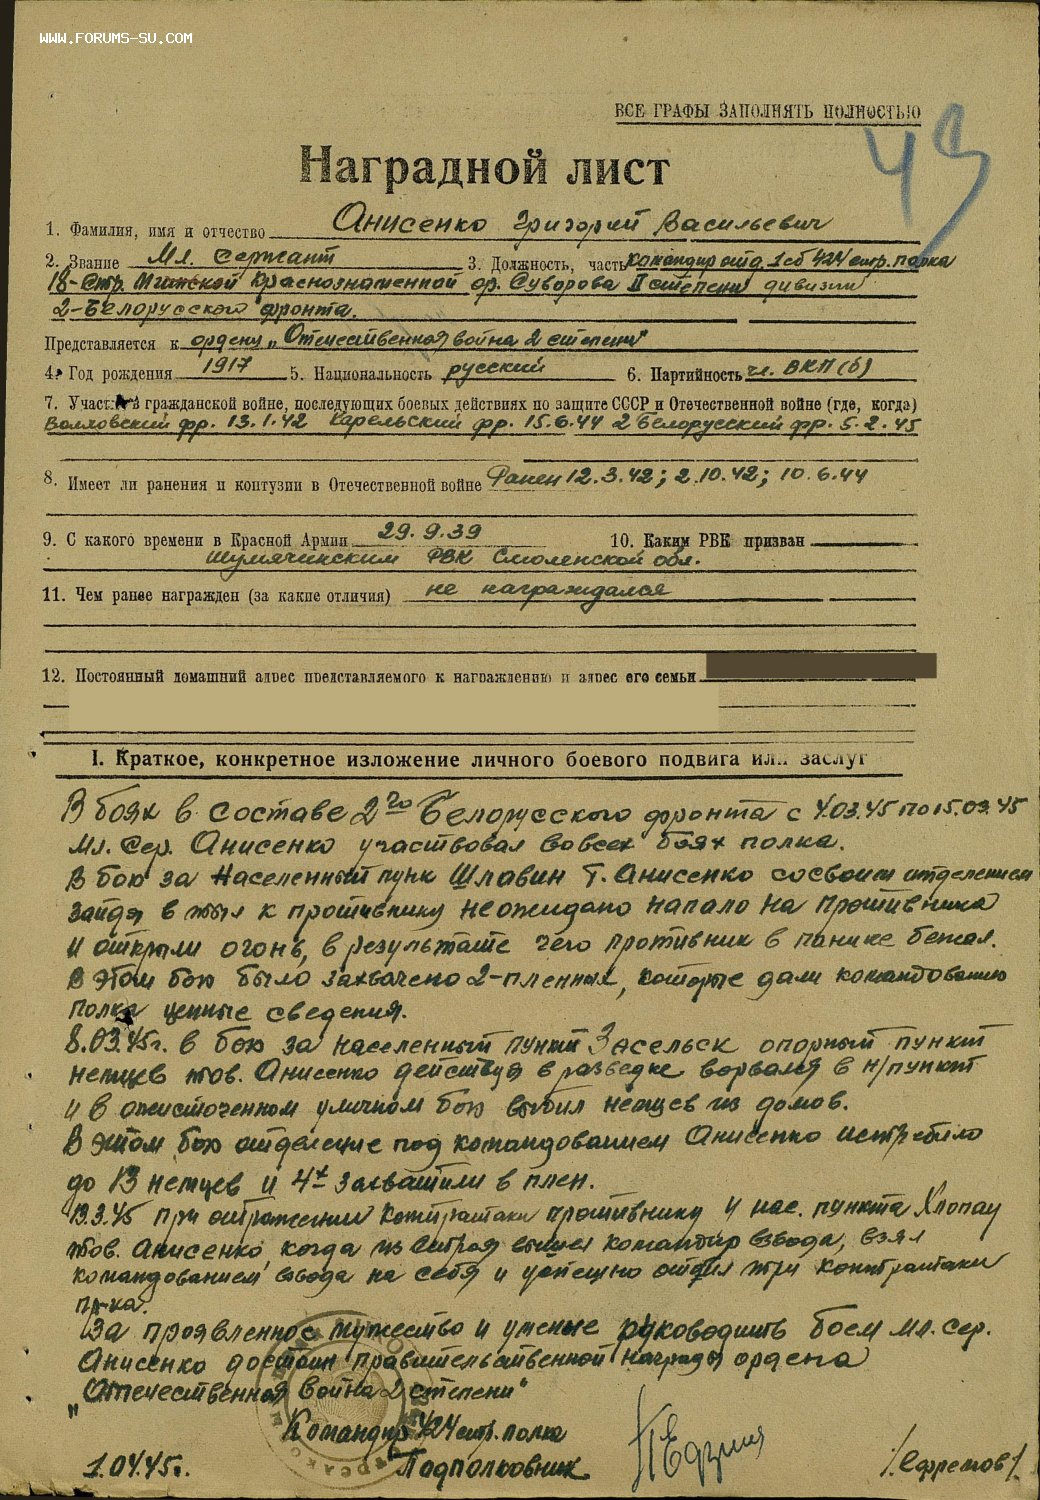 WWW.FORUMS-SU.COM
ВСЕ ГРАФЫ ЗАПОЛНЯТЬ ПОЛНОСТЬЮ
Наградной лист
1. Фамилия, имя и отчество Анисенко Григорий Васильевич
2. Звание Мл. Сержант 3. Должность, часть командир отд. 1 сб 424 стр. полка
18-Стр. Мгинской Краснознаменной ор. Суворова II степени дивизии
2-Белорусского фронта.
Представляется к ордену „Отечественная война 2 степени"
4. Год рождения 1917 5. Национальность русский 6. Партийность чл. ВКП(б)
7. Участие в гражданской войне, последующих боевых действиях по защите СССР и Отечественной войне (где, когда)
Волховский фр. 13.1.42 Карельский фр. 15.6.44 2 Белорусский фр. 5.2.45
8. Имеет ли ранения и контузии в Отечественной войне Ранен 12.3.42; 2.10.42; 10.6.44
9. С какого времени в Красной Армии 29.9.39 10. Каким РВК призван
Шумячинским РВК Смоленской обл.
11. Чем ранее награжден (за какие отличия) не награждался
12. Постоянный домашний адрес представляемого к награждению и адрес его семьи
I. Краткое, конкретное изложение личного боевого подвига или заслуг
В боях в составе 2го Белорусского фронта с 4.03.45 по 15.03.45
мл. сер. Анисенко участвовал во всех боях полка.
В бою за населенный пунк Шлавин т. Анисенко со своим отделением
зайдя в тыл к противнику неожидано напало на противника
и открыли огонь, в результате чего противник в панике бежал.
В этом бою было захвачено 2-пленных, которые дали командованию
полка ценные сведения.
8.03.45г. в бою за населенный пункт Засельск опорный пункт
немцев тов. Анисенко действуя в разведке ворвался в н/пункт
и в ожисточенном уличном бою выбил немцев из домов.
В этом бою отделение под командованием Анисенко истребило
до 13 немцев и 4х захватили в плен.
13.3.45 при отражении контратаки противнику у нас. пункта Хлопау
тов. Анисенко, когда из строя вышел командир взвода, взял
командованием взвода на себя и успешно отбил три контратаки
пр-ка.
За проявленное мужество и умение руководить боем мл. сер.
Анисенко достоин правительственной награды ордена
„Отечественная война 2 степени"
Командир 424 стр. полка
1.04.45г. Подполковник /Ефремов/.